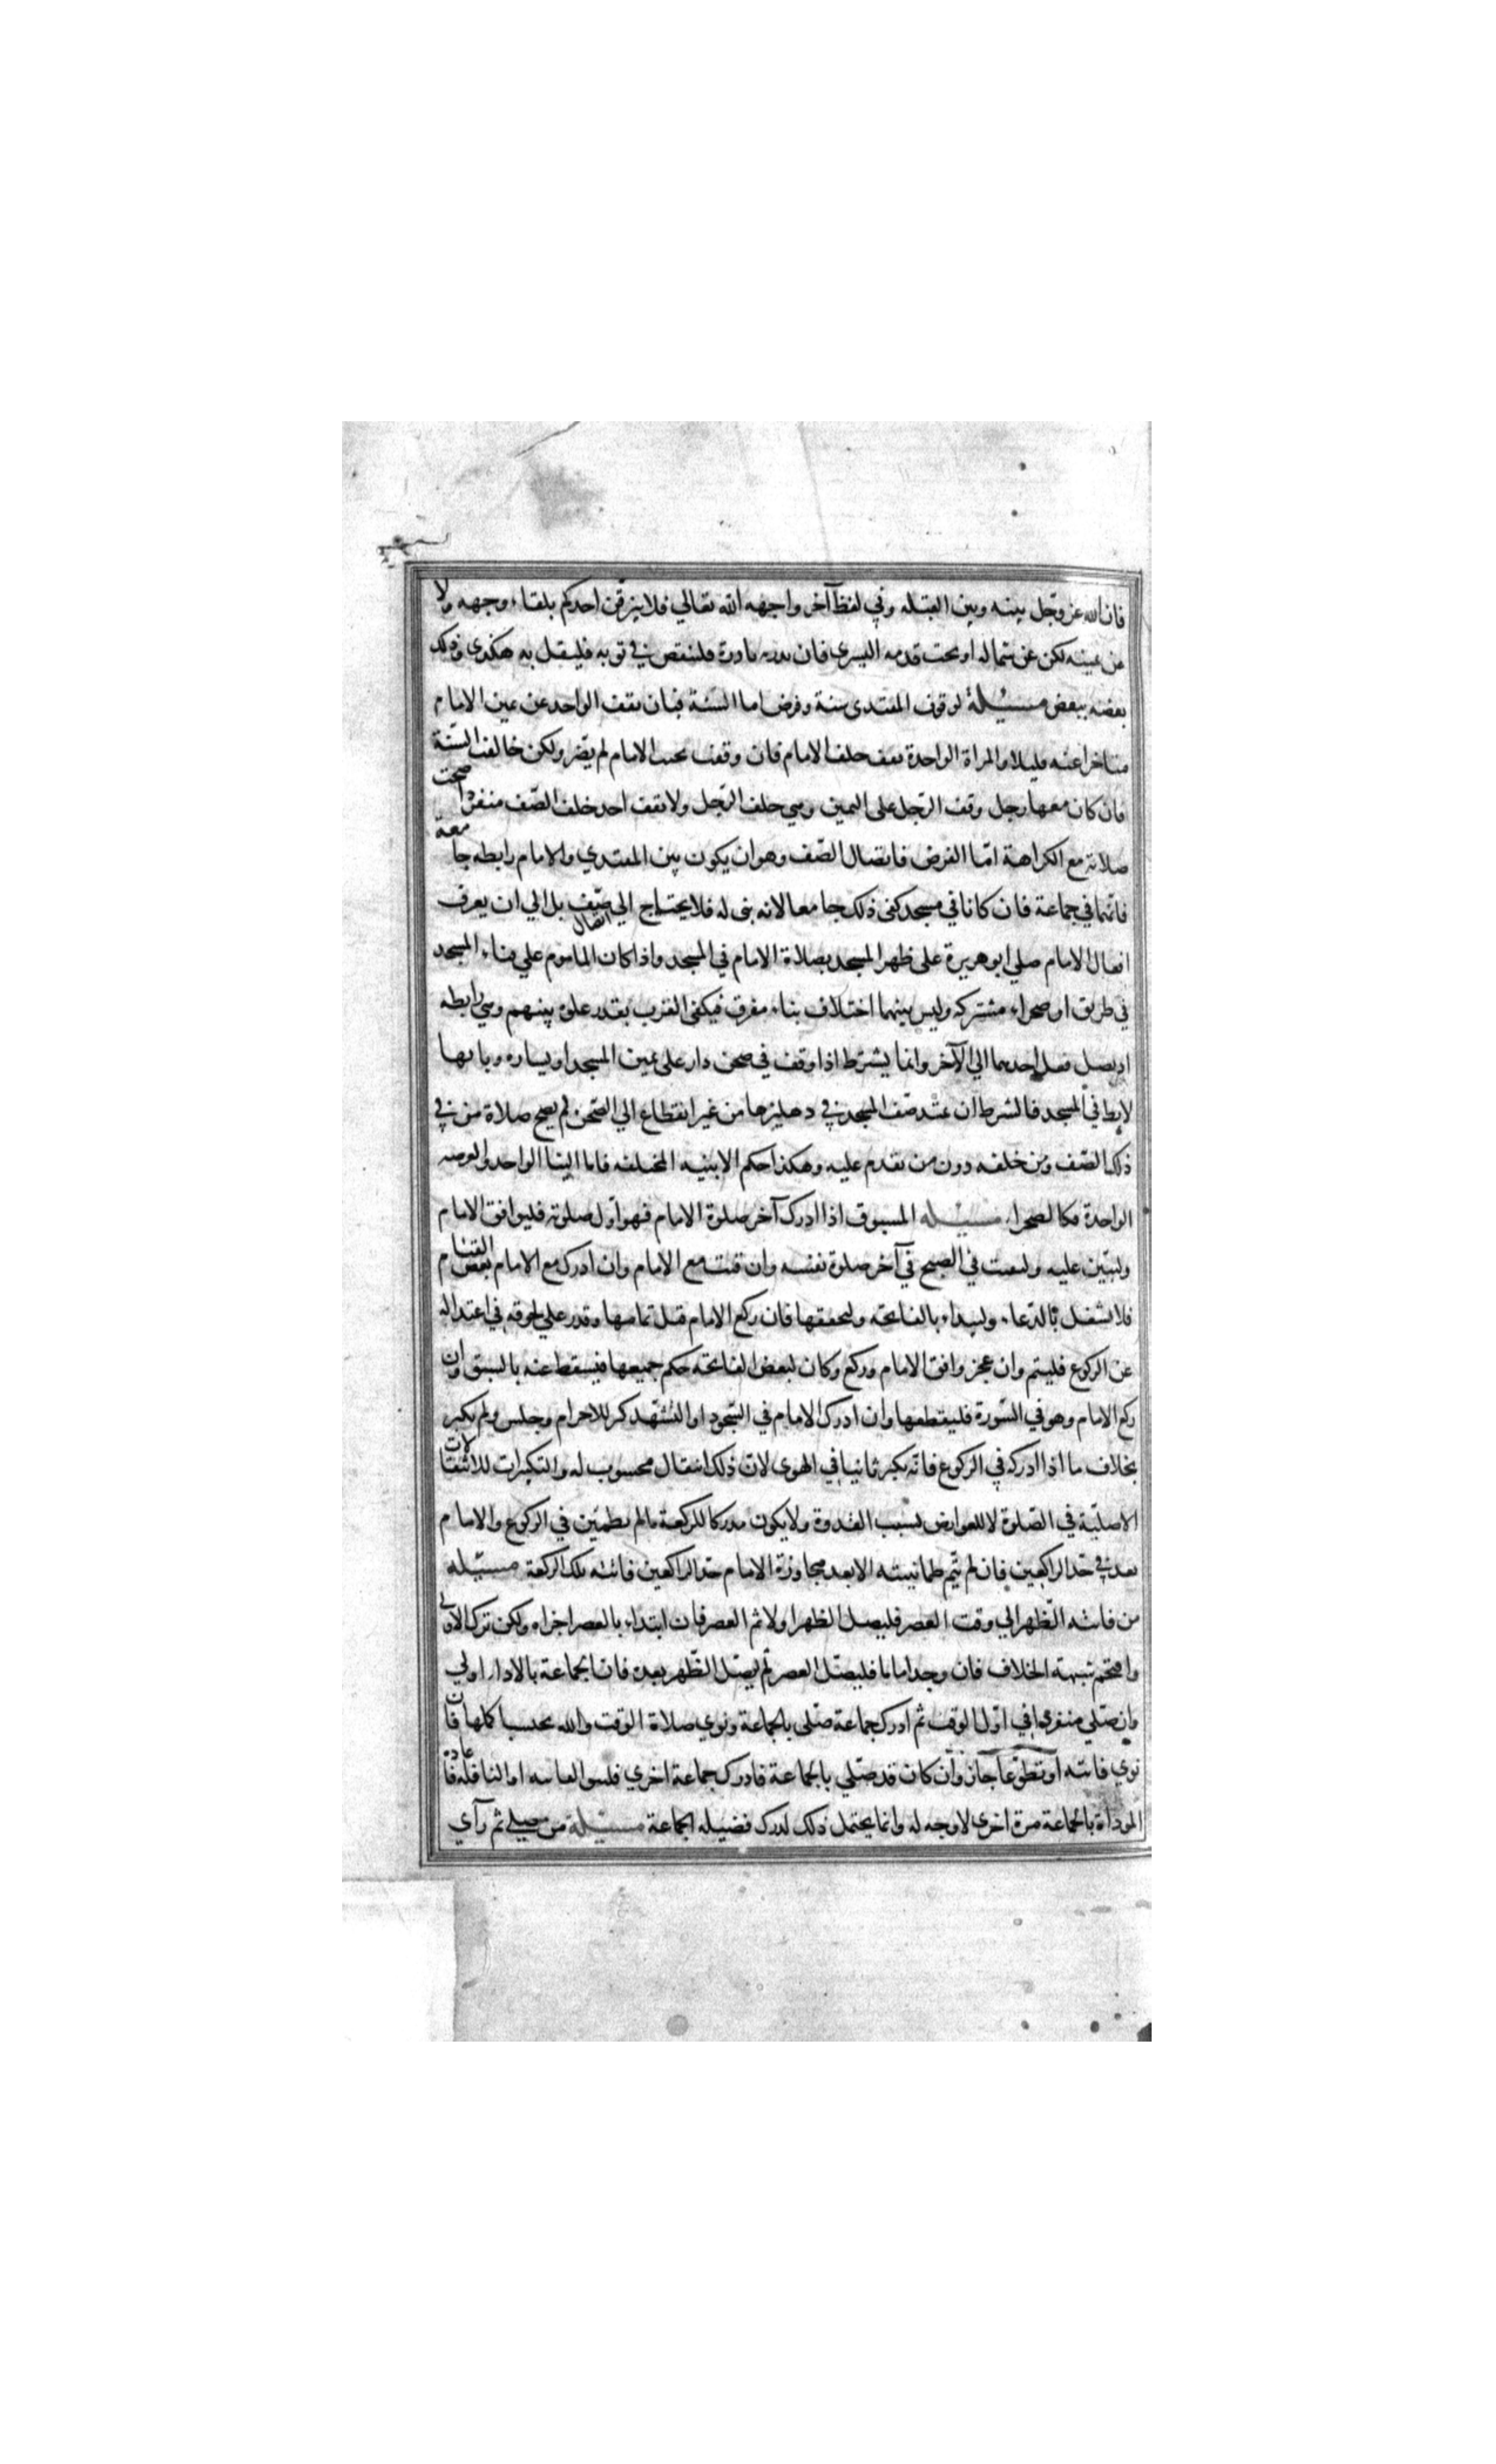 فان الله عز وجل بينه وبين القبلة وفي لفظ آخر واجهه الله تعالي فلا يبزقن احدكم تلقاء وجهه ولا
عن يمينه لكن عن شماله او تحت قدمه اليسري فان بدرته بادرة فليبصق في ثوبه فليقل به هكذي ودلك
بعضه ببعض مسئيلة لوقوف المقتدي سنة وفرض اما السنة فبان يقف الواحد عن يمين الامام
متاخرا عنه قليلا والمراة الواحدة تقف خلف الامام فان وقفت بجنب الامام لم يضر ولكن خالفت السنة
فان كان معها رجل وقف الرجل علي اليمين وهي خلف الرجل ولا يقف احد خلف الصف منفردا صحت
صلاته مع الكراهة امّا الفرض فاتصال الصّف وهو ان يكون بين المقتدي والامام رابطه جامعة
فانهما في جماعة فان كانا في مسجد كفي ذلك جامعا لانه بني له فلا يحتاج الي اتصال صّف بل الي ان يعرف
افعال الامام صلي ابو هريرة علي ظهر المسجد بصلاة الامام في المسجد واذا كان الماموم علي فناء المسجد
في طريق او صحراء مشتركه وليس بينهما اختلاف بناء مفرق فيكفي القرب بقدر غلوة بينهم وهي رابطه
اذ يصل فعل احدهما الي الآخر وانما يشترط اذا وقف في صحن دار علي يمين المسجد او يساره وبابها
لابط في المسجد فالشرط ان يمتد صّف المسجد في دهليزها من غير انقطاع الي الصحن ثم يصح صلاة من في
ذلك الصّف ومن خلفه دون من تقدم عليه وهكذا حكم الابنيه المختلفه فاما البنا الواحد والعرصه
الواحدة فكالصحراء مسئيله المسبوق اذا ادرك آخر صلوة الامام فهو اول صلوته فليوافق الامام
وليبّن عليه وليقنت في الصبح في آخر صلوة نفسه وان قنت مع الامام وان ادرك مع الامام بعض القيام
فلا يشغل بالدّعاء وليبداء بالفاتحة وليخففها فان ركع الامام قبل تمامها وقدر علي لحوقه في اعتداله
عن الركوع فليتم وان عجز وافق الامام وركع وكان لبعض الفاتحة حكم جميعها فيسقط عنه بالسبق وان
ركع الامام وهو في السّورة فليقطعها وان ادرك الامام في السّجود او التّشهّد كبر للاحرام وجلس ولم يكبر
بخلاف ما اذا ادركه في الركوع فانّه يكبر ثانيا في الهوي لان ذلك انتقال محسوب له والتكبيرات للانتقالات
الاصليّة في الصّلوة لا للعوارض بسبب القدوة ولا يكون مدركا للركعة ما لم يطمئن في الركوع والامام
بعد في حد الراكعين فان لم يتم طمانينته الا بعد مجاوزة الامام حد الراكعين فاتته تلك الركعة مسئيله
من فاتته الظهر الي وقت العصر فليصل الظهر اولا ثم العصر فان ابتداء بالعصر اجزاه ولكن ترك الاولي
واقتحم شبهة الخلاف فان وجد اماما فليصلّ العصر ثم يصلّ الظهر بعده فان الجماعة بالاداء اولي
وان صلّي منفردا في اوّل الوقت ثم ادرك جماعة صلّي بالجماعة ونوي صلاة الوقت والله يحتسب كلها فان
نوي فائته او تطوّعا جاز وان كان قد صلّي بالجماعة فادرك جماعة اخري فلينو الفائته او النافلة فاعادة
المؤداة بالجماعة مرة اخري لا وجه له وانما يحتمل ذلك لدرك فضيله الجماعة مسئيلة من صلي ثم رآي